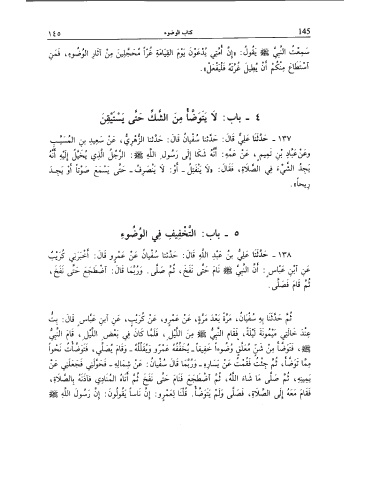 145 كتاب الوضوء ١٤٥
سَمِعْتُ النَّبِيَّ ﷺ يَقُولُ: «إِنَّ أُمَّتِي يُدْعَوْنَ يَوْمَ الْقِيَامَةِ غُرّاً مُحَجَّلِينَ مِنْ آثَارِ الْوُضُوءِ، فَمَنِ
اسْتَطَاعَ مِنْكُمْ أَنْ يُطِيلَ غُرَّتَهُ فَلْيَفْعَلْ».
٤ - باب: لَا يَتَوَضَّأُ مِنَ الشَّكِّ حَتَّى يَسْتَيْقِنَ
١٣٧ - حَدَّثَنَا عَلِيٌّ قَالَ: حَدَّثَنَا سُفْيَانُ قَالَ: حَدَّثَنَا الزُّهْرِيُّ، عَنْ سَعِيدِ بْنِ الْمُسَيَّبِ
وعَنْ عَبَّادِ بْنِ تَمِيمٍ، عَنْ عَمِّهِ: أَنَّهُ شَكَا إِلَى رَسُولِ اللَّهِ ﷺ: الرَّجُلُ الَّذِي يُخَيَّلُ إِلَيْهِ أَنَّهُ
يَجِدُ الشَّيْءَ فِي الصَّلَاةِ، فَقَالَ: «لَا يَنْفَتِلْ - أَوْ: لَا يَنْصَرِفْ - حَتَّى يَسْمَعَ صَوْتاً أَوْ يَجِدَ
رِيحاً».
٥ - باب: التَّخْفِيفِ فِي الْوُضُوءِ
١٣٨ - حَدَّثَنَا عَلِيُّ بْنُ عَبْدِ اللَّهِ قَالَ: حَدَّثَنَا سُفْيَانُ، عَنْ عَمْرٍو قَالَ: أَخْبَرَنِي كُرَيْبٌ
عَنِ ابْنِ عَبَّاسٍ: أَنَّ النَّبِيَّ ﷺ نَامَ حَتَّى نَفَخَ، ثُمَّ صَلَّى. وَرُبَّمَا قَالَ: اضْطَجَعَ حَتَّى نَفَخَ،
ثُمَّ قَامَ فَصَلَّى.
ثُمَّ حَدَّثَنَا بِهِ سُفْيَانُ، مَرَّةً بَعْدَ مَرَّةٍ، عَنْ عَمْرٍو، عَنْ كُرَيْبٍ، عَنِ ابْنِ عَبَّاسٍ قَالَ: بِتُّ
عِنْدَ خَالَتِي مَيْمُونَةَ لَيْلَةً، فَقَامَ النَّبِيُّ ﷺ مِنَ اللَّيْلِ، فَلَمَّا كَانَ فِي بَعْضِ اللَّيْلِ، قَامَ النَّبِيُّ
ﷺ، فَتَوَضَّأَ مِنْ شَنٍّ مُعَلَّقٍ وُضُوءاً خَفِيفاً - يُخَفِّفُهُ عَمْرٌو وَيُقَلِّلُهُ - وَقَامَ يُصَلِّي، فَتَوَضَّأْتُ نَحْواً
مِمَّا تَوَضَّأَ، ثُمَّ جِئْتُ فَقُمْتُ عَنْ يَسَارِهِ - وَرُبَّمَا قَالَ سُفْيَانُ: عَنْ شِمَالِهِ - فَحَوَّلَنِي فَجَعَلَنِي عَنْ
يَمِينِهِ، ثُمَّ صَلَّى مَا شَاءَ اللَّهُ، ثُمَّ اضْطَجَعَ فَنَامَ حَتَّى نَفَخَ، ثُمَّ أَتَاهُ الْمُنَادِي فَآذَنَهُ بِالصَّلَاةِ،
فَقَامَ مَعَهُ إِلَى الصَّلَاةِ، فَصَلَّى وَلَمْ يَتَوَضَّأْ. قُلْنَا لِعَمْرٍو: إِنَّ نَاساً يَقُولُونَ: إِنَّ رَسُولَ اللَّهِ ﷺ